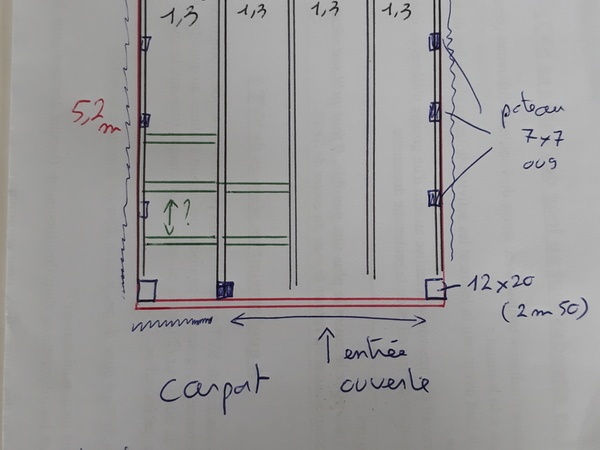 1,3 1,3 1,3 1,3
5,2
m
poteau
7x7
ou9
?
12x20
(2m50)
entrée
ouverte
carport